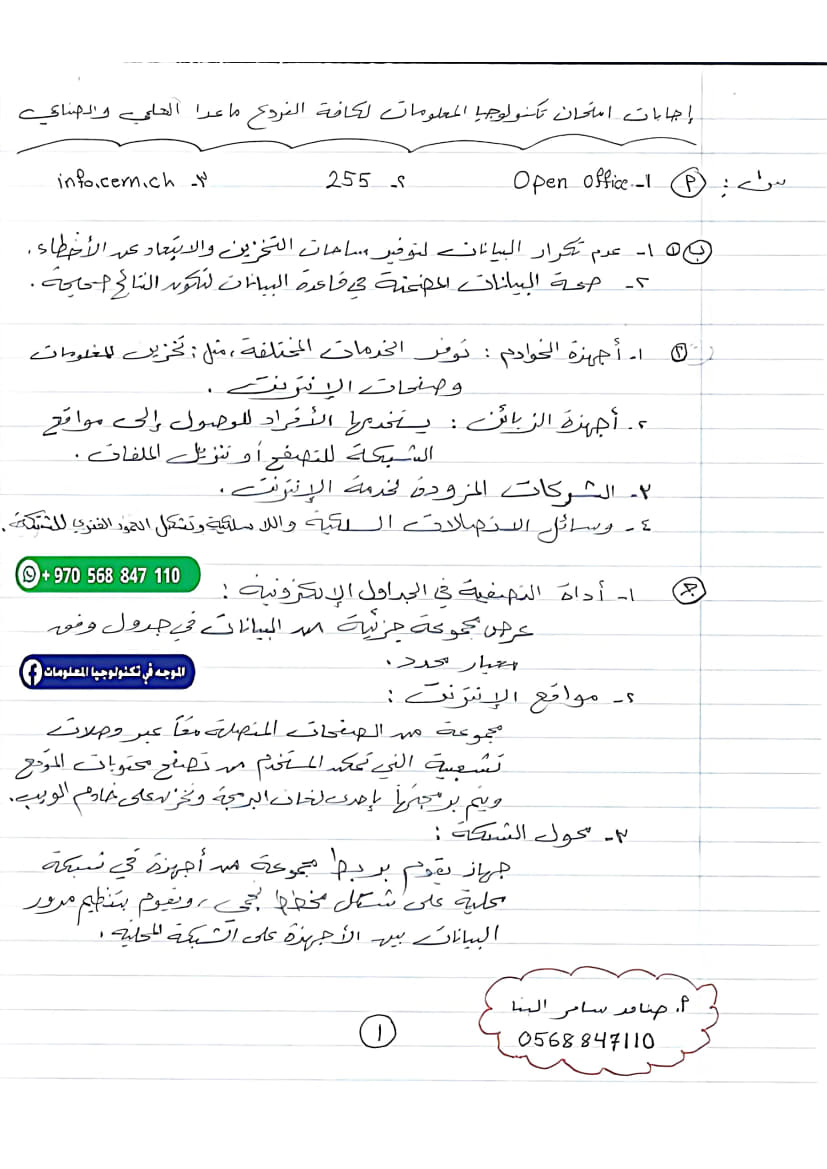 إجابات امتحان تكنولوجيا المعلومات لكافة الفروع ما عدا العلمي والصناعي
س١: (أ) ١- Open office ٢- 255 ٣- info.cern.ch
(ب) ① ١- عدم تكرار البيانات لتوفير مساحات التخزين والابتعاد عن الأخطاء.
٢- صحة البيانات المضمنة في قاعدة البيانات لتكون النتائج صحيحة.
② ١. أجهزة الخوادم : توفر الخدمات المختلفة، مثل: تخزين المعلومات
وصفحات الإنترنت.
٢. أجهزة الزبائن : يستخدمها الأفراد للوصول إلى مواقع
الشبكة للتصفح أو تنزيل الملفات.
٣- الشركات المزودة لخدمة الإنترنت.
٤- وسائل الاتصالات السلكية واللاسلكية وتشكل العمود الفقري للشبكة.
+ 970 568 847 110
(ج) ١- أداة التصفية في الجداول الإلكترونية :
عرض مجموعة جزئية من البيانات في جدول وفق
معيار محدد.
الموجه في تكنولوجيا المعلومات
٢- مواقع الإنترنت :
مجموعة من الصفحات المتصلة معاً عبر وصلات
تشعبية التي تمكن المستخدم من تصفح محتويات الموقع
ويتم برمجتها بإحدى لغات البرمجة وتخزن على خادم الويب.
٣- محول الشبكة :
جهاز يقوم بربط مجموعة من أجهزة في شبكة
محلية على شكل مخطط نجمي، ويقوم بتنظيم مرور
البيانات بين الأجهزة على الشبكة المحلية.
أ. سامر البنا
0568847110
١